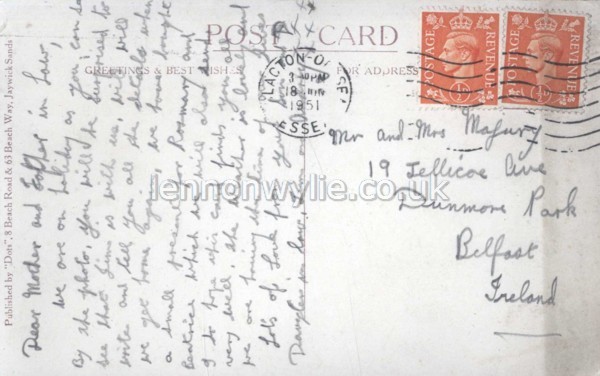 POST CARD
GREETINGS & BEST WISHES
FOR ADDRESS
POSTAGE REVENUE
POSTAGE REVENUE
CLACTON-ON-SEA
18
1951
ESSEX
Published by "Dots", 8 Beach Road & 63 Beach Way, Jaywick Sands
Dear Mother and Father in Law,
we are on holiday as you can
By the photo, You will be surprised to
see that Jim is with us, will
write and tell you all the details when
we get home again, we have bought
a small present for Rosemary and
Beatrice which we will also send
I do hope this card finds you all
very well, the weather is lovely and
we are having
Lots of Love from your
Daughter in law,
Mr and Mrs Maybury
19 Jellicoe Ave
Dunmore Park
Belfast
Ireland
lennonwylie.co.uk